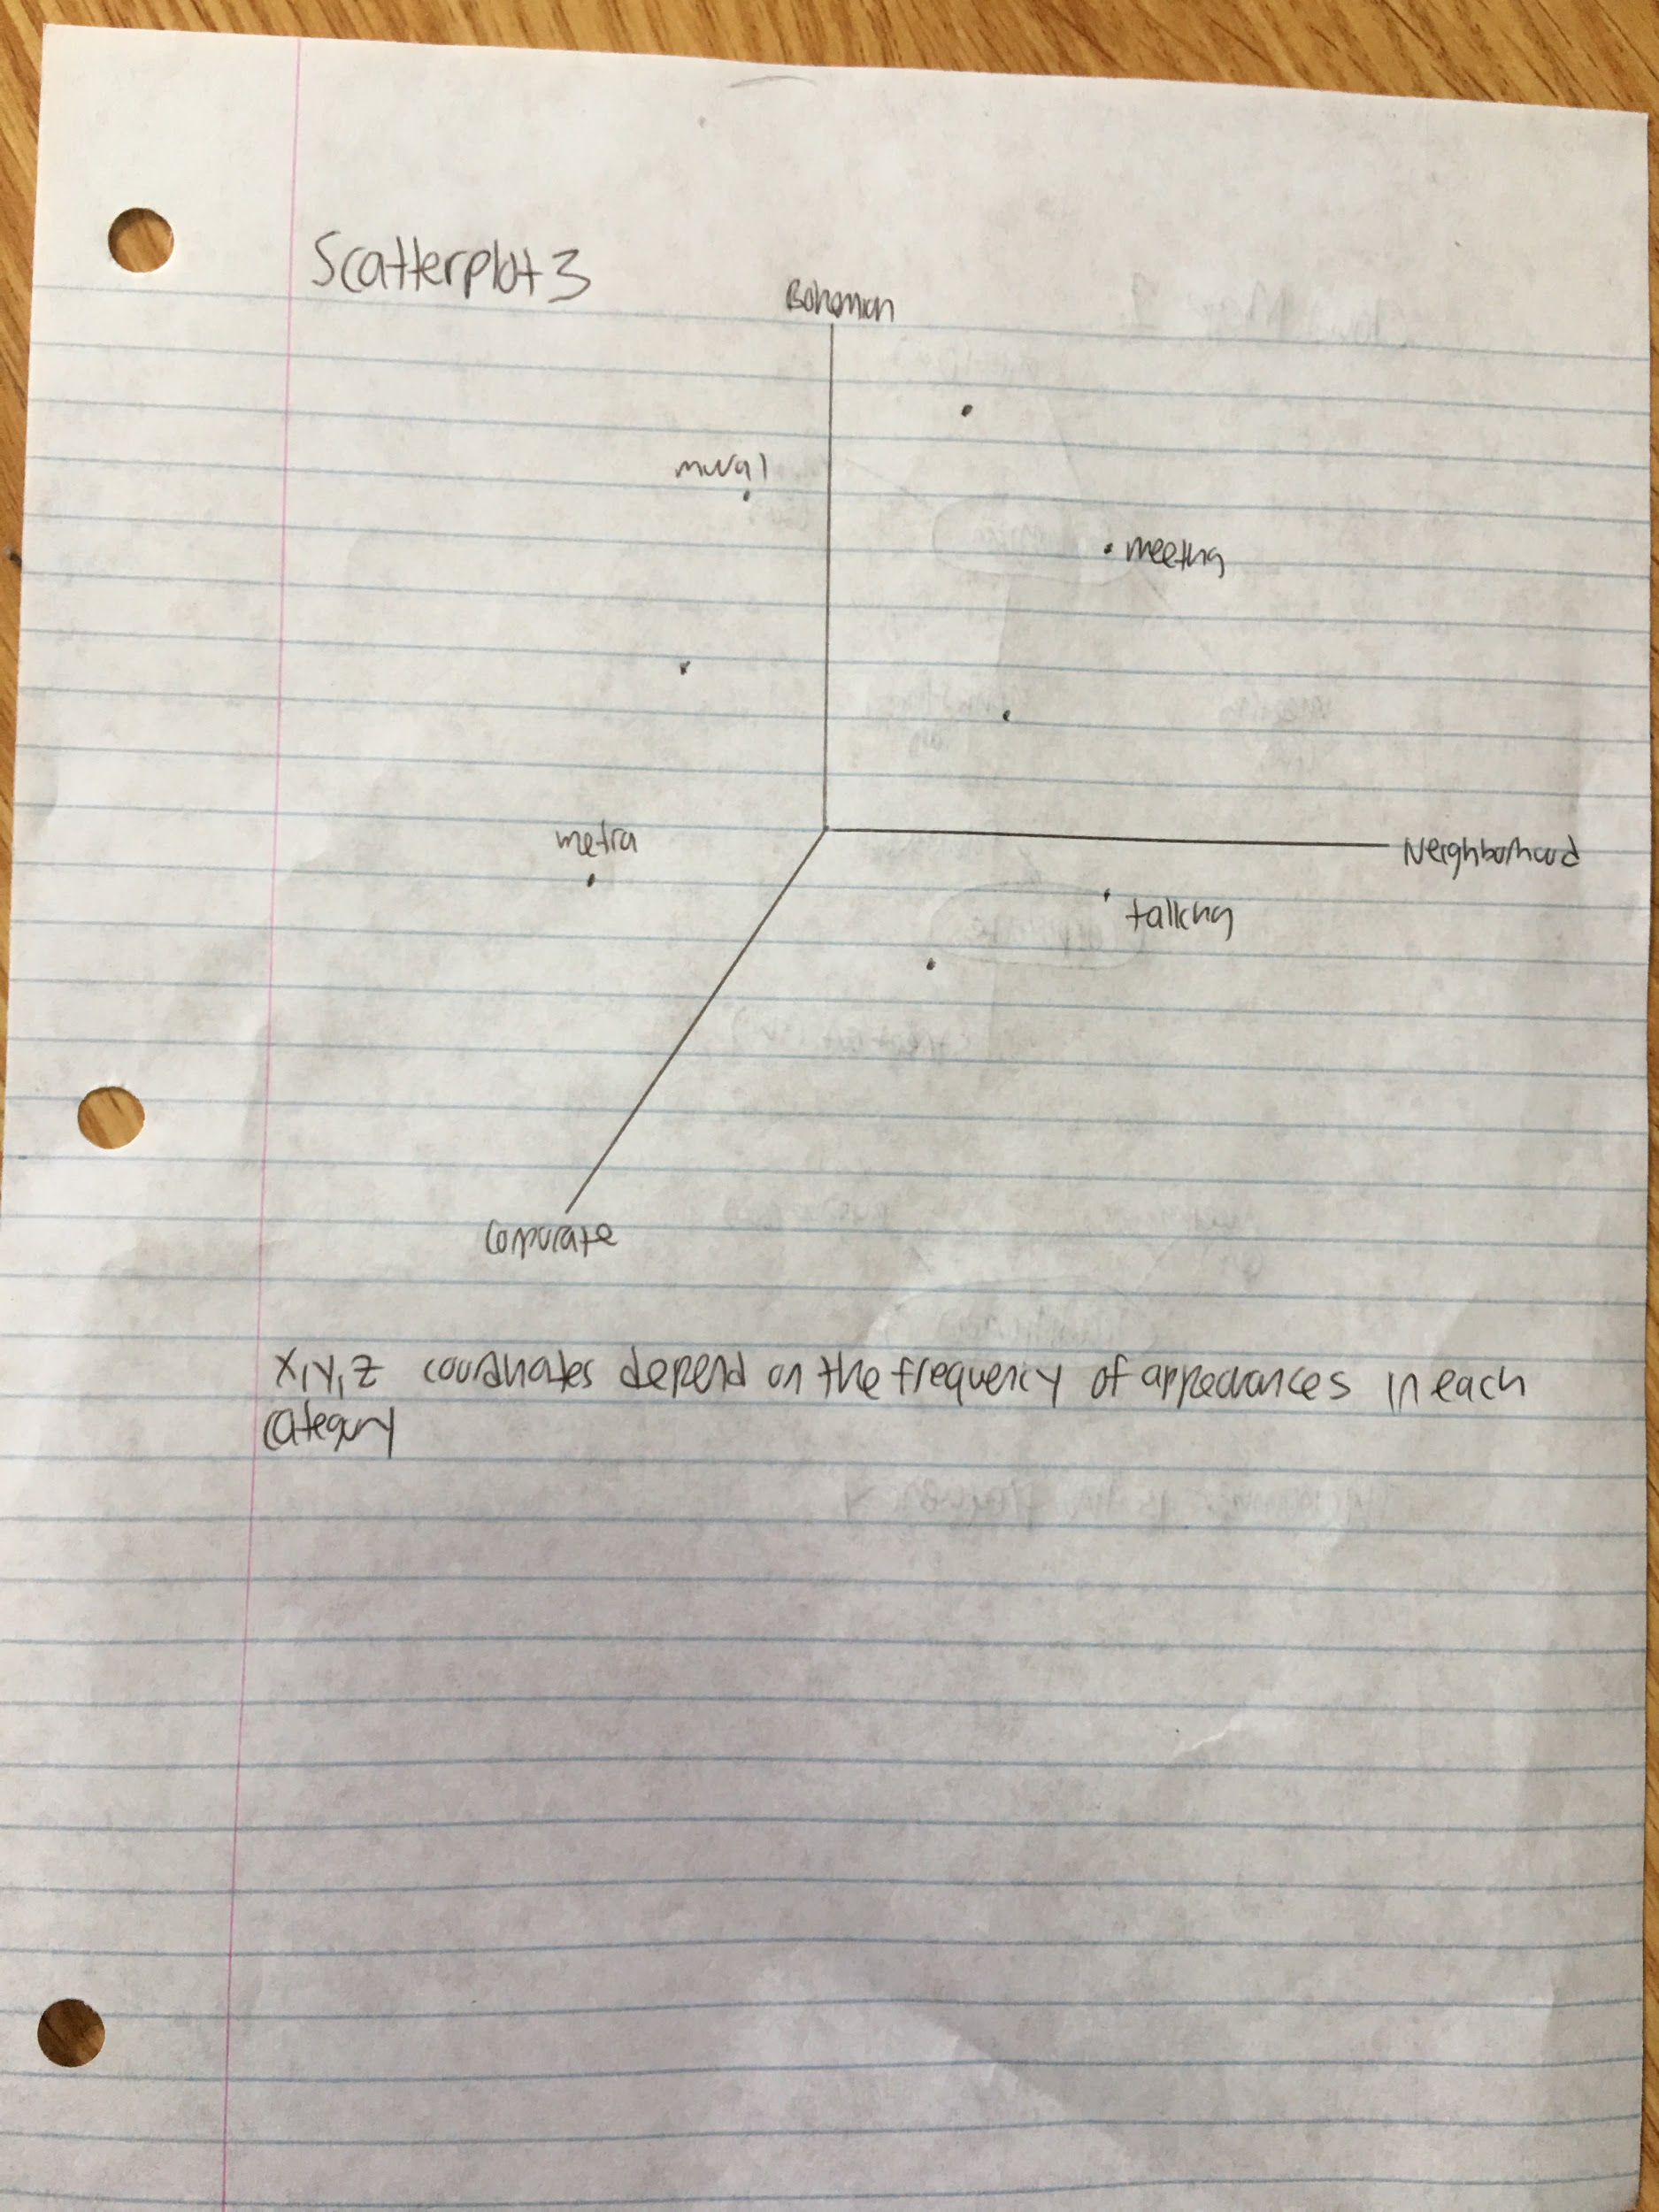 Scatterplot 3
Bohemian
mural
meeting
metra
Neighborhood
talking
Corporate
X, Y, Z coordinates depend on the frequency of appearances in each
category